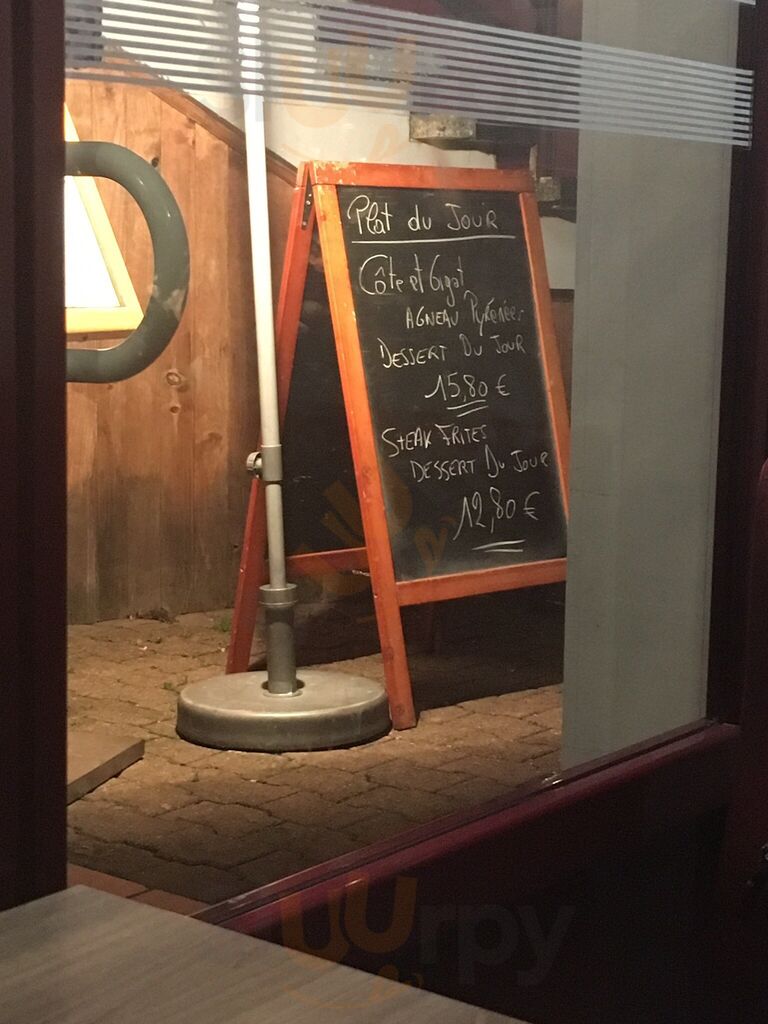 Plat du Jour
Côte et Gigot
AGNEAU Pyrénées
DESSERT DU JOUR
15,80 €
STEAK FRITES
DESSERT DU JOUR
12,80 €
uurpy